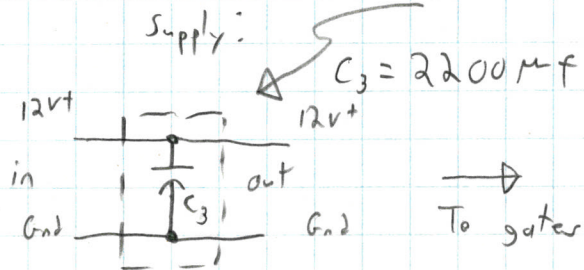 Supply:
C₃ = 2200 μf
12v+
12v+
in
out
C₃
Gnd
Gnd
To gates